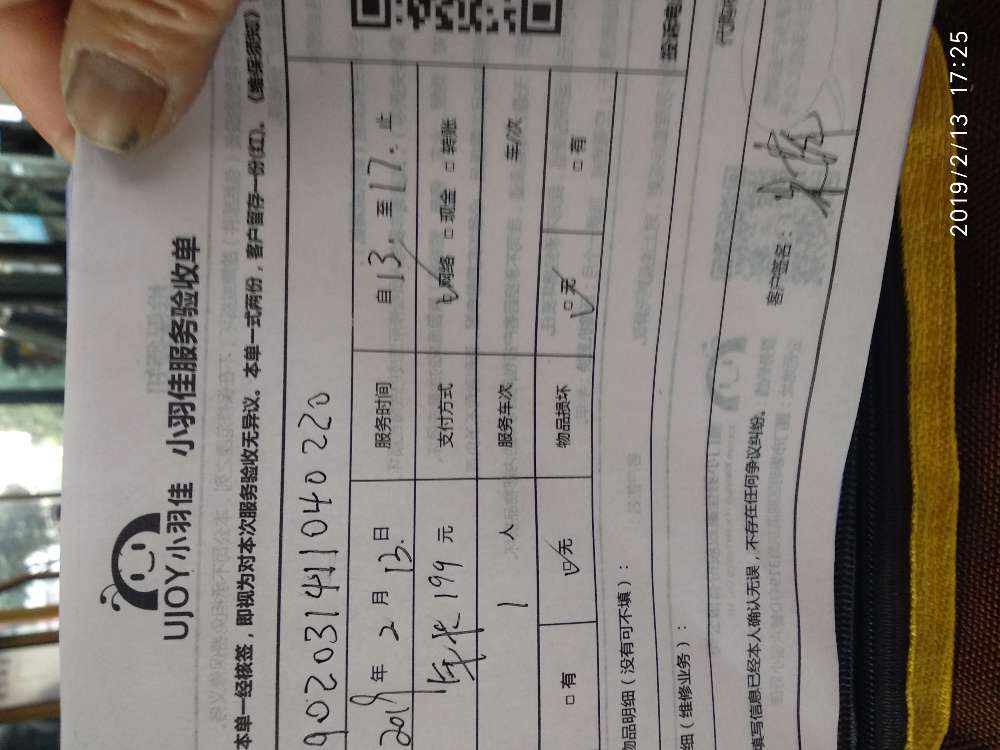 UJOY小羽佳 小羽佳服务验收单
本单一经核签，即视为对本次服务验收无异议。本单一式两份，客户留存一份(红)。《维保须知》
90220314111040220
2019年 2月 13日 服务时间 自13. 至17. 止
年卡 199元 支付方式 网络 □现金 □转账
1人 服务车次 车/次
□有 □无 物品损坏 □无 □有
物品明细（没有可不填）：
细（维修业务）：
填写信息已经本人确认无误，不存在任何争议纠纷。 客户签名：
2019/2/13 17:25